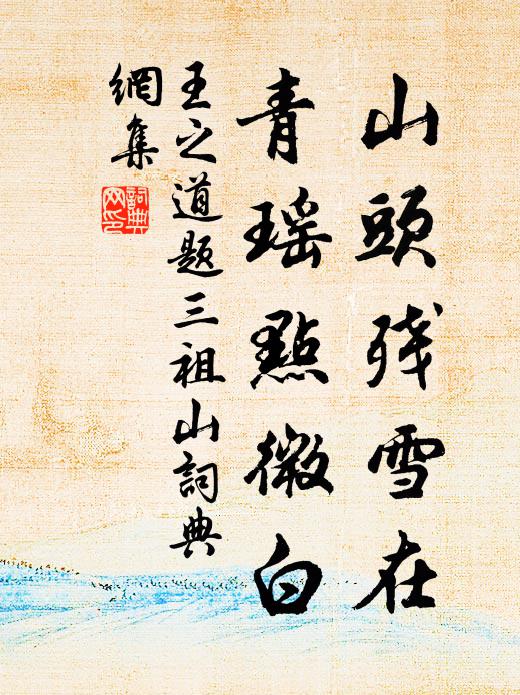 山頭残雪在
青瑶點微白
王之道题三祖山詞典
網集
詞典網印